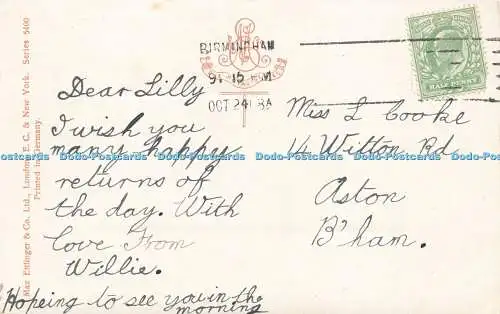 Max Ettlinger & Co., Ltd., London, E. C., & New York. Series 5400
Printed in Germany.
BIRMINGHAM
OCT 24
HALFPENNY
Dear Lilly
I wish you
many happy
returns of
the day. With
love From
Willie.
Hopeing to see you in the
morning
Miss L Cooke
14 Witton Rd
Aston
B'ham.
Dodo-Postcards Dodo-Postcards Dodo-Postcards Dodo-Postcards Dodo-Postcards Dodo-Postcards